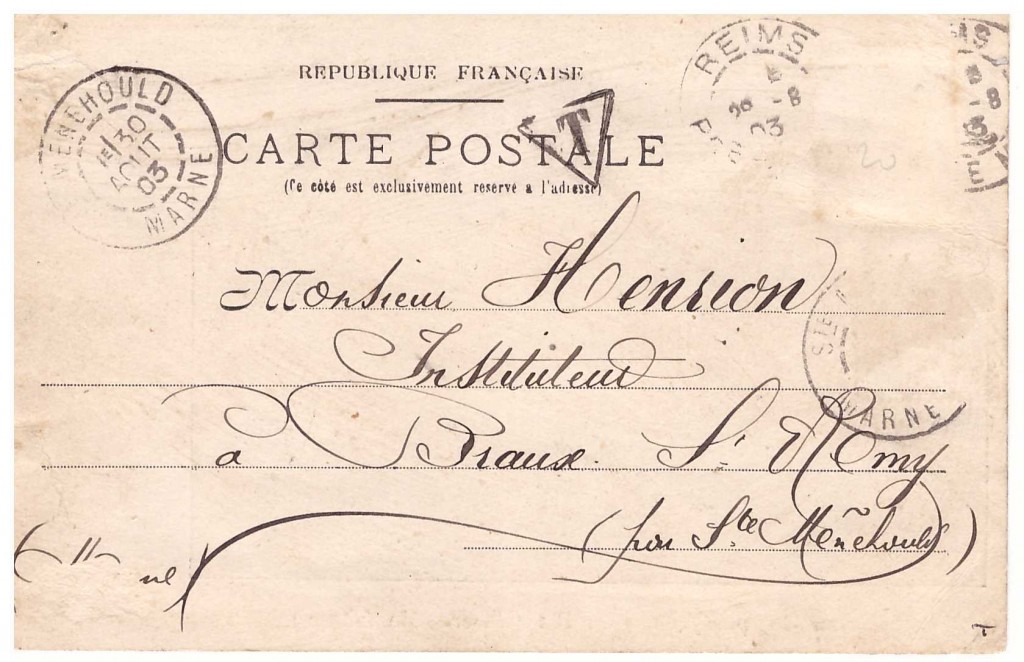 REPUBLIQUE FRANÇAISE
CARTE POSTALE
(Ce côté est exclusivement réservé a l'adresse)
T
MENEHOULD
1E/30
AOUT
03
MARNE
REIMS
26
-8
03
MS
8
Monsieur Henrion
Instituteur
à Braux St Remy
(par Ste Menehould)
STE
MARNE
ne
T